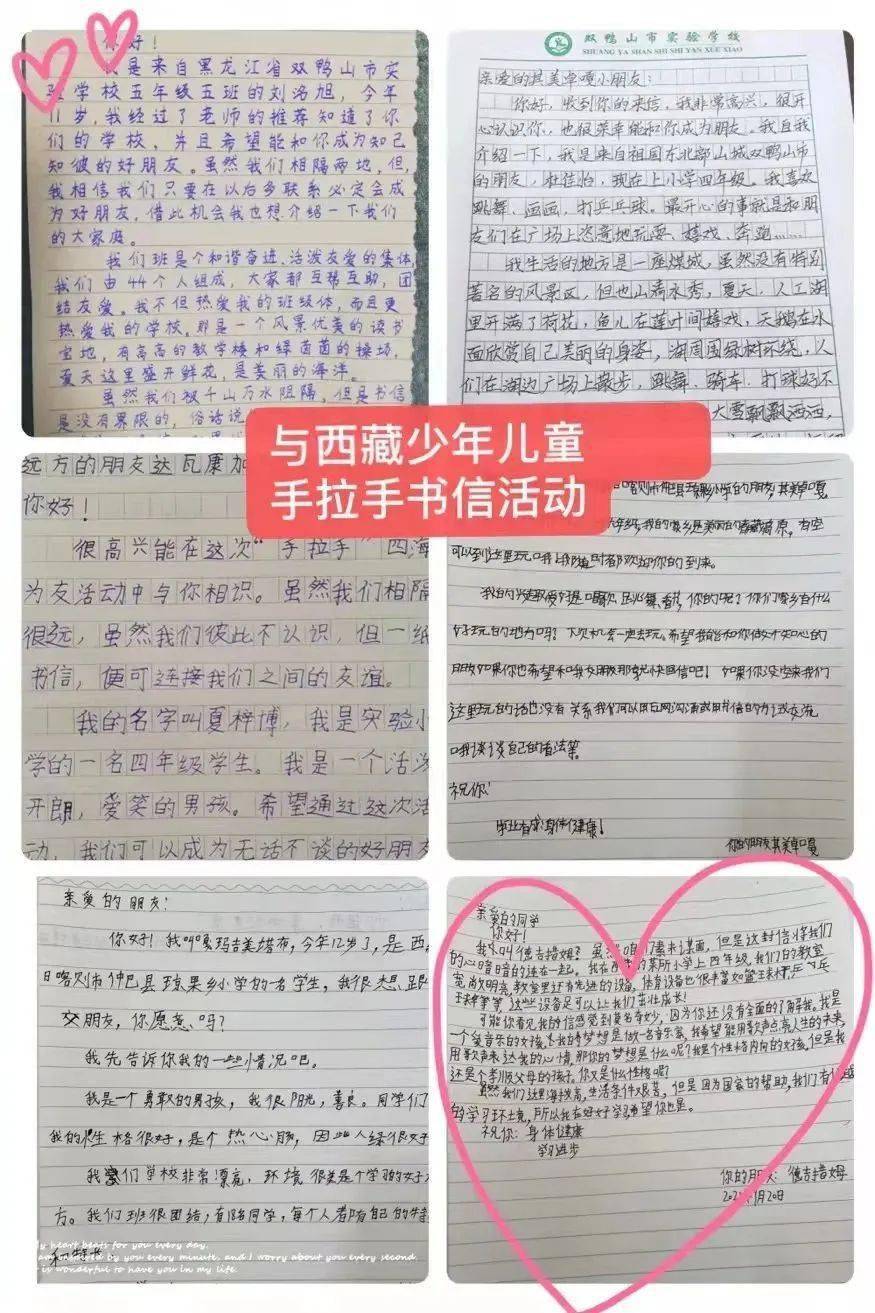 你好！
我是来自黑龙江省双鸭山市实
验学校五年级五班的刘洺旭，今年
11岁，我经过了老师的推荐知道了你
们的学校，并且希望能和你成为知己
知彼的好朋友。虽然我们相隔两地，但，
我相信我们只要在以后多联系必定会成
为好朋友，借此机会我也想介绍一下我们
的大家庭。
我们班是个和谐奋进、活泼友爱的集体，
我们由44个人组成，大家都互帮互助，团
结友爱。我不但热爱我的班级体，而且更
热爱我的学校。那是一个风景优美的读书
宝地，有高高的教学楼和绿茵茵的操场，
夏天这里盛开鲜花，是美丽的海洋。
虽然我们被千山万水阻隔，但是书信
是没有界限的，俗话说
双鸭山市实验学校
SHUANG YA SHAN SHI SHI YAN XUE XIAO
亲爱的其美卓嘎小朋友：
你好，收到你的来信，我非常高兴，很开
心认识你，也很荣幸能和你成为朋友。我自我
介绍一下，我是来自祖国东北部山城双鸭山市
的朋友，杜佳怡，现在上小学四年级。我喜欢
跳舞、画画，打乒乓球。最开心的事就是和朋
友们在广场上恣意地玩耍、嬉戏、奔跑……
我生活的地方是一座煤城，虽然没有特别
著名的风景区，但也山清水秀，夏天，人工湖
里开满了荷花，鱼儿在莲叶间嬉戏，天鹅在水
面欣赏自己美丽的身姿，湖周围绿树环绕，人
们在湖边广场上散步，跳舞、骑车、打球好不
大雪飘飘洒洒，
与西藏少年儿童
手拉手书信活动
远方的朋友达瓦康加
你好！
很高兴能在这次“手拉手”四海
为友活动中与你相识。虽然我们相隔
很远，虽然我们彼此不认识，但一纸
书信，便可连接我们之间的友谊。
我的名字叫夏梓博，我是实验小
学的一名四年级学生。我是一个活泼
开朗，爱笑的男孩。希望通过这次活
动，我们可以成为无话不谈的好朋友
的朋友，其美卓嘎
年级，我的家乡是美丽的青藏高原，有空
可以到这里玩哦我随时都欢迎你的到来。
我的兴趣爱好是唱歌 跳舞，你的呢？你们家乡有什么
好玩的地方吗？下次机会一定去玩。希望我能和你做好知心的
朋友如果你也希望和我交朋友那就快回信吧！如果你没空来我们
这里玩的话也没有关系我们可以用互网沟通或用书信的方试交流
哦谈谈自己的看法等。
祝你！
学业有成身体健康！
你的朋友其美卓嘎
亲爱的朋友：
你好！我叫嘎玛吉美塔布，今年12岁了，是西
日喀则市仲巴县琼果乡小学的一名学生，我很想跟
交朋友，你愿意吗？
我先告诉你我的一些情况吧。
我是一个勇敢的男孩，我很阳光，善良。同学们
我的性格很好，是个热心肠，因此人缘很好
我们学校非常漂亮，环境很美是个学习的好
方。我们班很团结，有陪同学，每个人都有自己的特
和
my heart beats for you every day.
by you every minute, and I worry about you every second.
is wonderful to have you in my life.
亲爱的同学
你好！
我叫德吉措姆？虽然咱们素未谋面，但是这封信将我们
的心暗暗的连在一起。我在西藏的某所小学上四年级，我们的教室
宽敞明亮，教室里还有先进的设备，体育设备也很丰富如篮球乒乓
球等等，这些设备足可以让我们茁壮成长！
可能你看见我的信感觉到莫名奇妙，因为你还没有全面的了解我。我是
一个爱音乐的女孩，我的梦想是做一名音乐家，我希望能用歌声点亮人生的未来，
用歌声表达我的心情，那你的梦想是什么呢？我是个性格内向的女孩。但是我
还是个孝顺父母的孩子。你又是什么性格呢？
虽然我们这里海拔高，生活条件艰苦，但是因为国家的帮助，我们有
的学习环境，所以我在好好学习希望你也是。
祝你：身体健康
学习进步
你的朋友：德吉措姆
1月20日